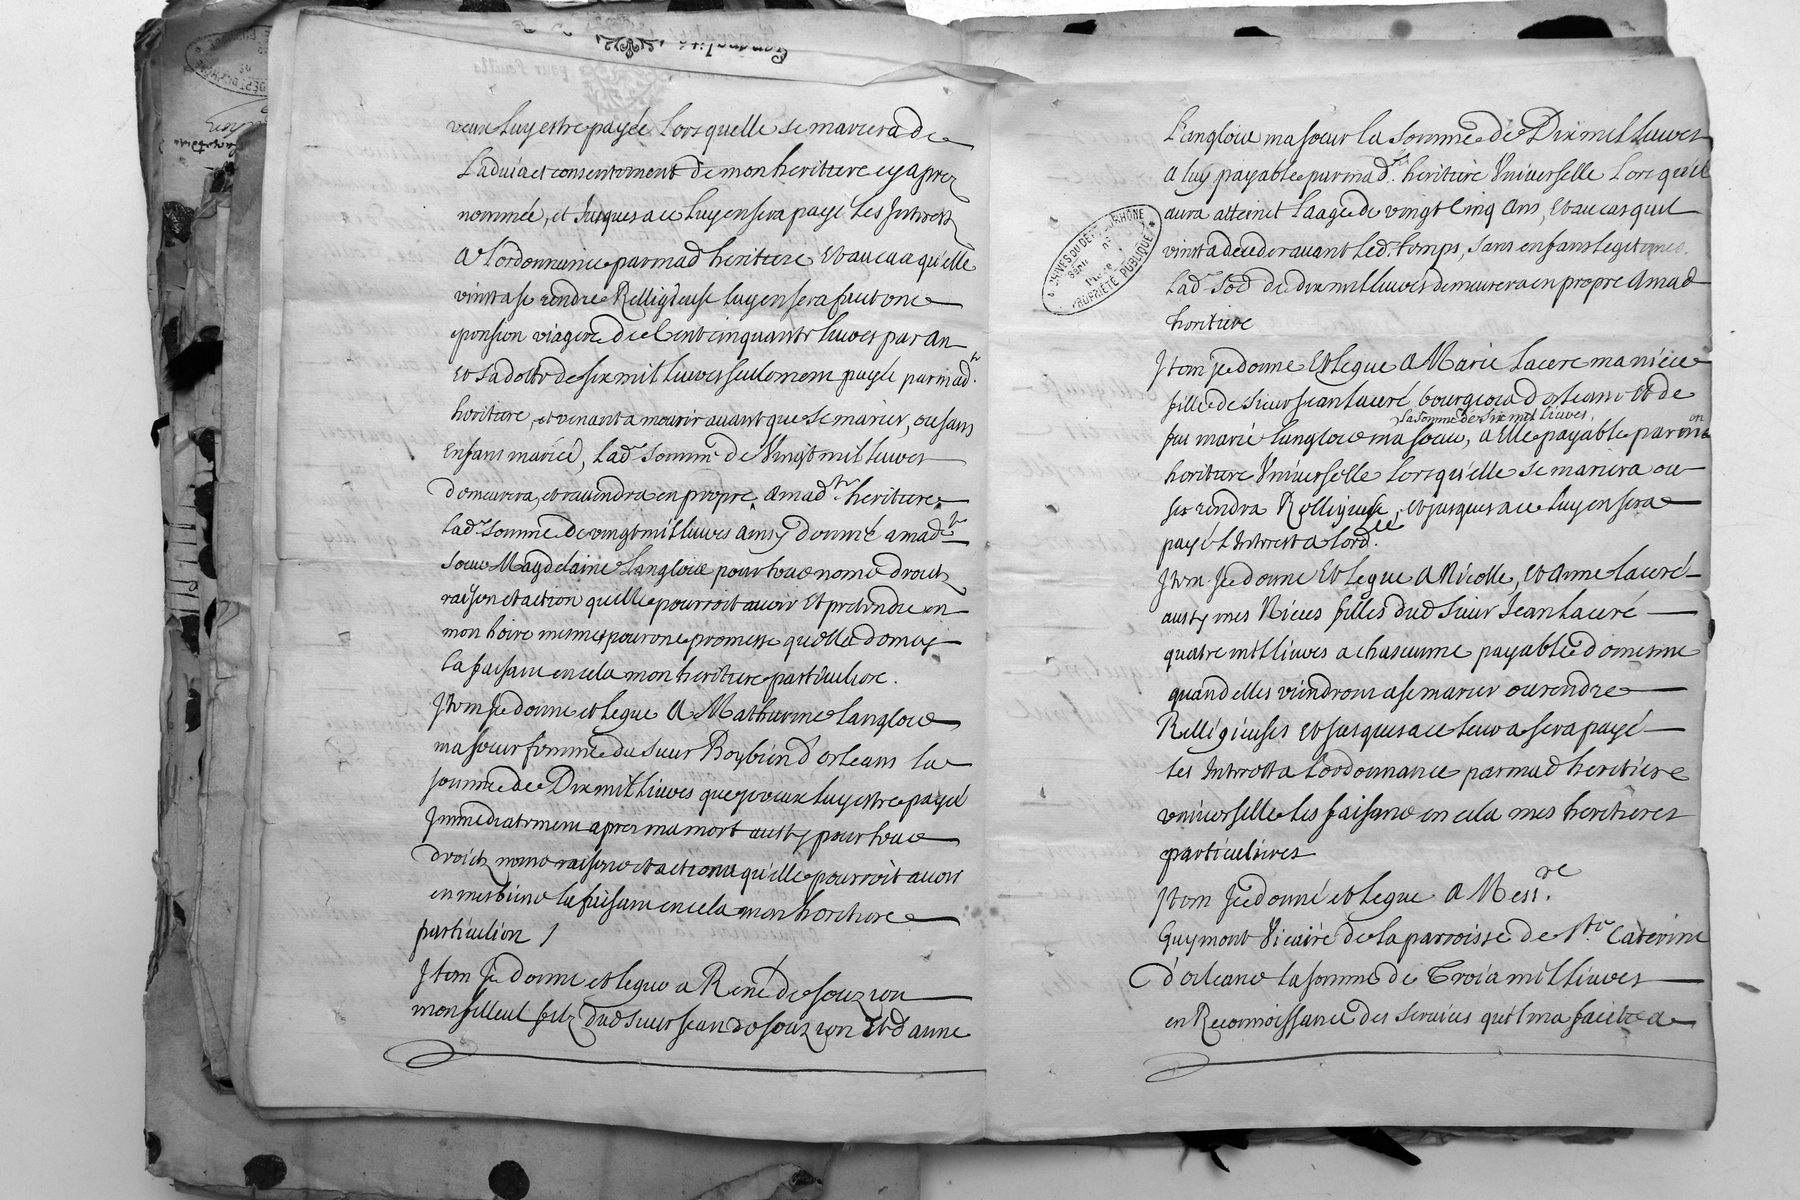 veux luy estre payée lors quelle se mariera de
Ladvis et consentement de mon heritiere cy aprez
nommée, et Jusques a ce luy en sera payé les Interestz
A Lordonnance par mad heritiere Et au cas qu'elle
vint a se rendre Relligieuse luy en sera faict une
pension viagere de Cent cinquante livres par An
Et sa dotte de six mil livres seulement payée par mad.
heritiere, et venant a mourir avant que se marier, ou sans
Enfans mariée, Lad. somme de Vingt mil livres
demeurera, et reviendra en propre A mad.te heritiere
Lad. somme de vingt mil livres ainsy donné a mad.te
soeur Magdelaine Langlois pour tous noms droictz
raison et action quelle pourroit avoir Et pretendre en
mon hoire mesmes pour une promesse quelle a de moy
La faisant en cela mon heritiere particuliere.
Item Je donne et legue A Mathurine langlois
ma soeur femme du sieur Roybien d'orleans la
somme de Dix mil livres que je veux luy estre payé
Immediatement apres ma mort aussy pour tous
droictz noms raisons et actions qu'elle pourroit avoir
en mes biens la faisant en cela mon heritiere
particuliere /
Item Je donne et legue a René de souzion
mon filleul filz dud sieur Jean de souzion Et d'anne
Langlois ma soeur la somme de Dix mil livres
A luy payable par mad. heritiere Universelle Lors qu'il
aura atteinct Laage de vingt Cinq Ans, Et au cas quil
vint a deceder avant led. temps, sans enfans legitimes
Lad. so.e de dix mil livres demeurera en propre A mad
heritiere
Item Je donne Et legue A Marie Laceré ma niéce
fille de sieur Jean Laceré bourgeois d'orleans Et de
la somme de six mil livres,
feu marie langlois ma soeur, a Elle payable par mon
heritiere Universelle lors qu'elle se mariera ou
se rendra Relligieuse, et jusques a ce luy en sera
payé l'Interest a lord.ce
Item Je donne Et legue A Nicolle, Et Anne Laceré
aussy mes Nieces filles dud Sieur Jean Laceré
quatre mil livres a chascunne payable de mesme
quand elles viendront a se marier ou rendre
Relligieuses Et jusques a ce leur sera payé
Les Interest a Lordonnance par mad heritiere
universelle les faisant en cela mes heritieres
particulieres
Item Je donne et legue A Mess.re
Guymont Vicaire de la parroisse de s.te Caterine
d'orleans la somme de Trois mil livres
en Reconnoissance des services qu'il m'a faict
ARCHIVES DU DÉP. DU RHÔNE
PROPRIÉTÉ PUBLIQUE